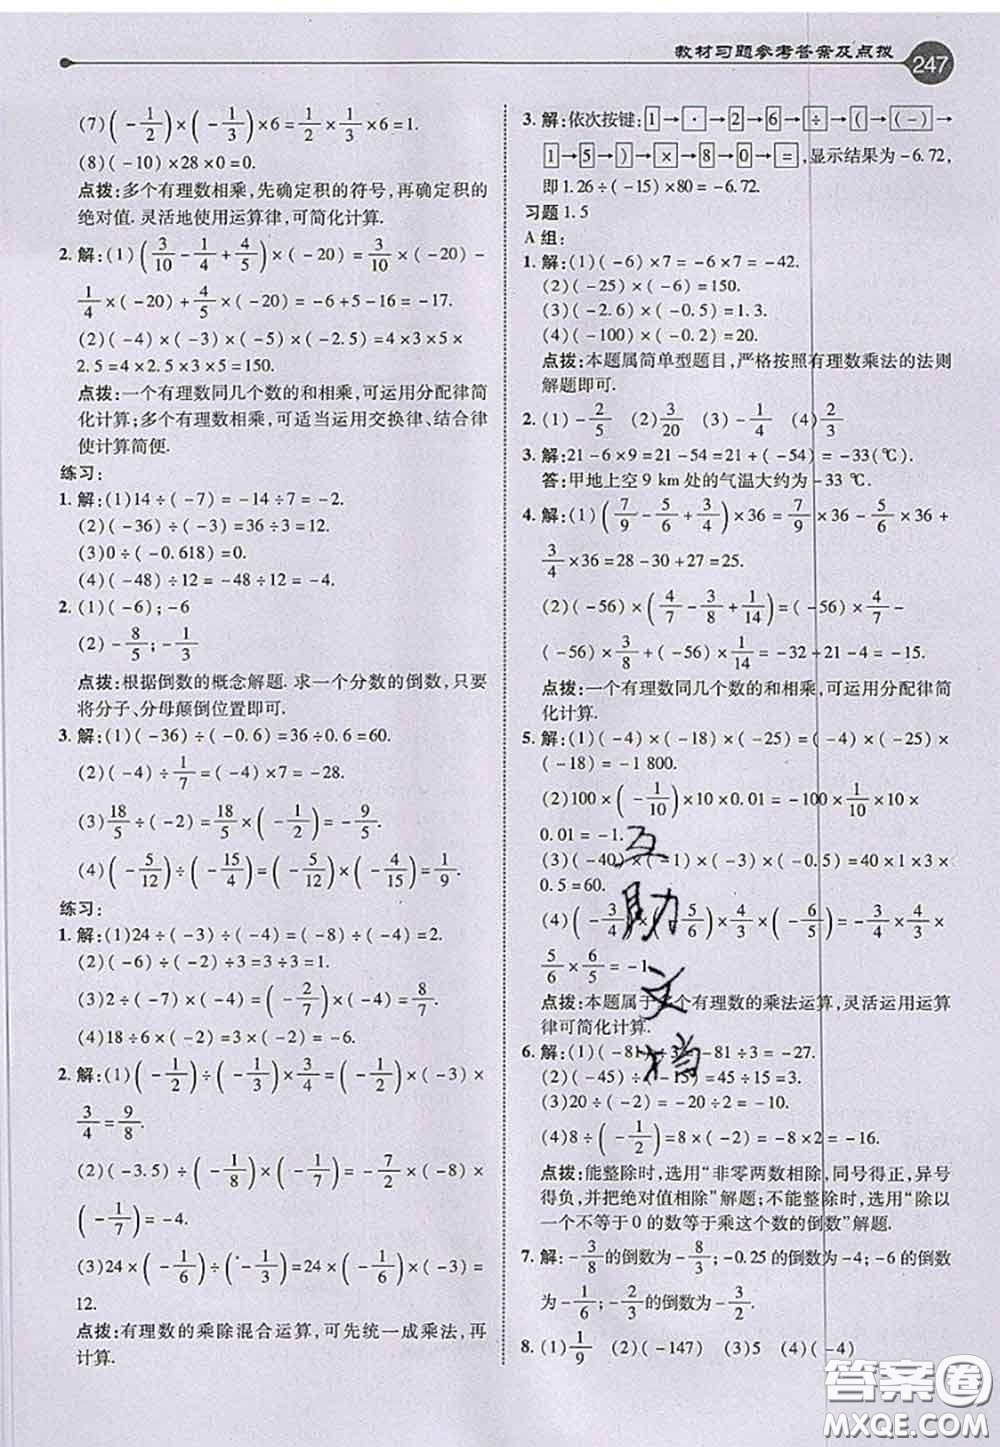 教材习题参考答案及点拨 247
(7)(-1/2)×(-1/3)×6=1/2×1/3×6=1.
(8)(-10)×28×0=0.
点拨:多个有理数相乘,先确定积的符号,再确定积的
绝对值.灵活地使用运算律,可简化计算.
2. 解:(1)(3/10-1/4+4/5)×(-20)=3/10×(-20)-
1/4×(-20)+4/5×(-20)=-6+5-16=-17.
(2)(-4)×(-3)×(-5)×(-2.5)=4×3×5×
2.5=4×2.5×3×5=150.
点拨:一个有理数同几个数的和相乘,可运用分配律简
化计算;多个有理数相乘,可适当运用交换律、结合律
使计算简便.
练习:
1. 解:(1)14÷(-7)=-14÷7=-2.
(2)(-36)÷(-3)=36÷3=12.
(3)0÷(-0.618)=0.
(4)(-48)÷12=-48÷12=-4.
2. (1)(-6);-6
(2)-8/5;-1/3
点拨:根据倒数的概念解题.求一个分数的倒数,只要
将分子、分母颠倒位置即可.
3. 解:(1)(-36)÷(-0.6)=36÷0.6=60.
(2)(-4)÷1/7=(-4)×7=-28.
(3)18/5÷(-2)=18/5×(-1/2)=-9/5.
(4)(-5/12)÷(-15/4)=(-5/12)×(-4/15)=1/9.
练习:
1. 解:(1)24÷(-3)÷(-4)=(-8)÷(-4)=2.
(2)(-6)÷(-2)÷3=3÷3=1.
(3)2÷(-7)×(-4)=(-2/7)×(-4)=8/7.
(4)18÷6×(-2)=3×(-2)=-6.
2. 解:(1)(-1/2)÷(-1/3)×3/4=(-1/2)×(-3)×
3/4=9/8.
(2)(-3.5)÷(-1/8)×(-1/7)=-7/2×(-8)×
(-1/7)=-4.
(3)24×(-1/6)÷(-1/3)=24×(-1/6)×(-3)=
12.
点拨:有理数的乘除混合运算,可先统一成乘法,再
计算.
3. 解:依次按键:1→·→2→6→÷→(→(-)→
1→5→)→×→8→0→=,显示结果为-6.72,
即1.26÷(-15)×80=-6.72.
习题1.5
A组:
1. 解:(1)(-6)×7=-6×7=-42.
(2)(-25)×(-6)=150.
(3)(-2.6)×(-0.5)=1.3.
(4)(-100)×(-0.2)=20.
点拨:本题属简单型题目,严格按照有理数乘法的法则
解题即可.
2. (1)-2/5 (2)3/20 (3)-1/4 (4)2/3
3. 解:21-6×9=21-54=21+(-54)=-33(℃).
答:甲地上空9 km处的气温大约为-33 ℃.
4. 解:(1)(7/9-5/6+3/4)×36=7/9×36-5/6×36+
3/4×36=28-30+27=25.
(2)(-56)×(4/7-3/8+1/14)=(-56)×4/7-
(-56)×3/8+(-56)×1/14=-32+21-4=-15.
点拨:一个有理数同几个数的和相乘,可运用分配律简
化计算.
5. 解:(1)(-4)×(-18)×(-25)=(-4)×(-25)×
(-18)=-1 800.
(2)100×(-1/10)×10×0.01=-100×1/10×10×
0.01=-1.
(3)(-40)×(-1)×(-3)×(-0.5)=40×1×3×
0.5=60.
(4)(-3/4)×(-5/6)×4/3×(-6/5)=-3/4×4/3×
5/6×6/5=-1.
点拨:本题属于个有理数的乘法运算,灵活运用运算
律可简化计算.
6. 解:(1)(-81)÷3=-81÷3=-27.
(2)(-45)÷(-15)=45÷15=3.
(3)20÷(-2)=-20÷2=-10.
(4)8÷(-1/2)=8×(-2)=-8×2=-16.
点拨:能整除时,选用“非零两数相除,同号得正,异号
得负,并把绝对值相除”解题;不能整除时,选用“除以
一个不等于0的数等于乘这个数的倒数”解题.
7. 解:-3/8的倒数为-8/3;-0.25的倒数为-4;-6的倒数
为-1/6;-2/3的倒数为-3/2.
8. (1)1/9 (2)(-147) (3)5 (4)(-4)
互助文档
答案圈
MXQE.COM